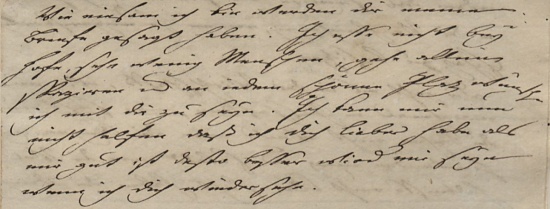 Wie einsam ich bin werden dir meine
Briefe gesagt haben. Ich esse nicht bey
Hofe, sehe wenig Menschen, gehe allein
spazieren und an iedem schönen Platz wünscht
ich mit dir zu seyn. Ich kann mir nun
nicht helfen daß ich dich lieber habe als
mir gut ist desto besser wird mir seyn
wenn ich dich wiedersehe.